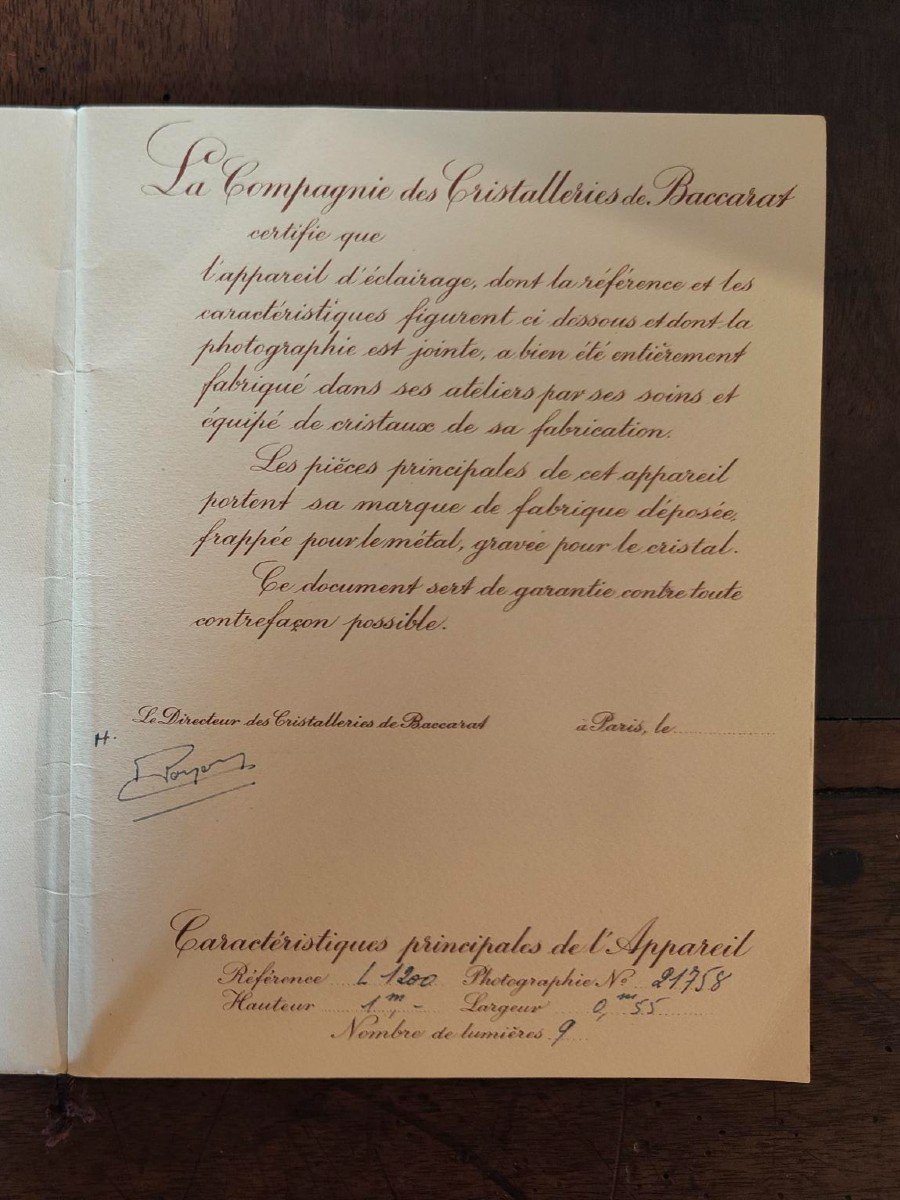 La Compagnie des Cristalleries de Baccarat
certifie que
l'appareil d'éclairage, dont la référence et les
caractéristiques figurent ci dessous et dont la
photographie est jointe, a bien été entièrement
fabriqué dans ses ateliers par ses soins et
équipé de cristaux de sa fabrication.
Les pièces principales de cet appareil
portent sa marque de fabrique déposée,
frappée pour le métal, gravée pour le cristal.
Ce document sert de garantie contre toute
contrefaçon possible.
Le Directeur des Cristalleries de Baccarat à Paris, le
H.
Caractéristiques principales de l'Appareil
Référence L 1200 Photographie No 21758
Hauteur 1m,- Largeur 0,m55
Nombre de lumières 9